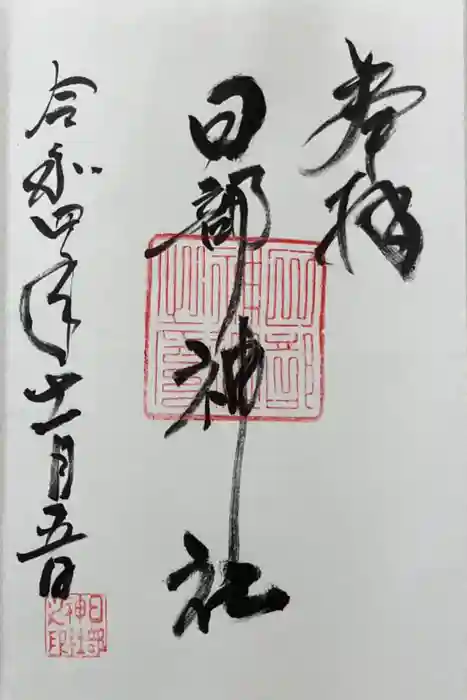 奉拝
日部神社
令和四年十一月五日
日部
神社
之印